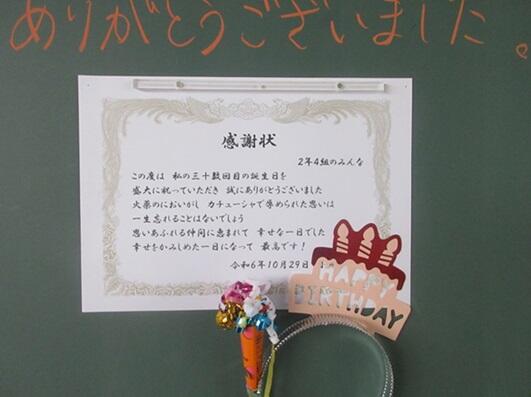 ありがとうございました。
感謝状
2年4組のみんな
この度は 私の三十数回目の誕生日を
盛大に祝っていただき 誠にありがとうございました
火薬のにおいがし カチューシャで締められた思いは
一生忘れることはないでしょう
思いあふれる仲間に恵まれて 幸せな一日でした
幸せをかみしめた一日になって 最高です!
令和6年10月29日
HAPPY
BIRTHDAY